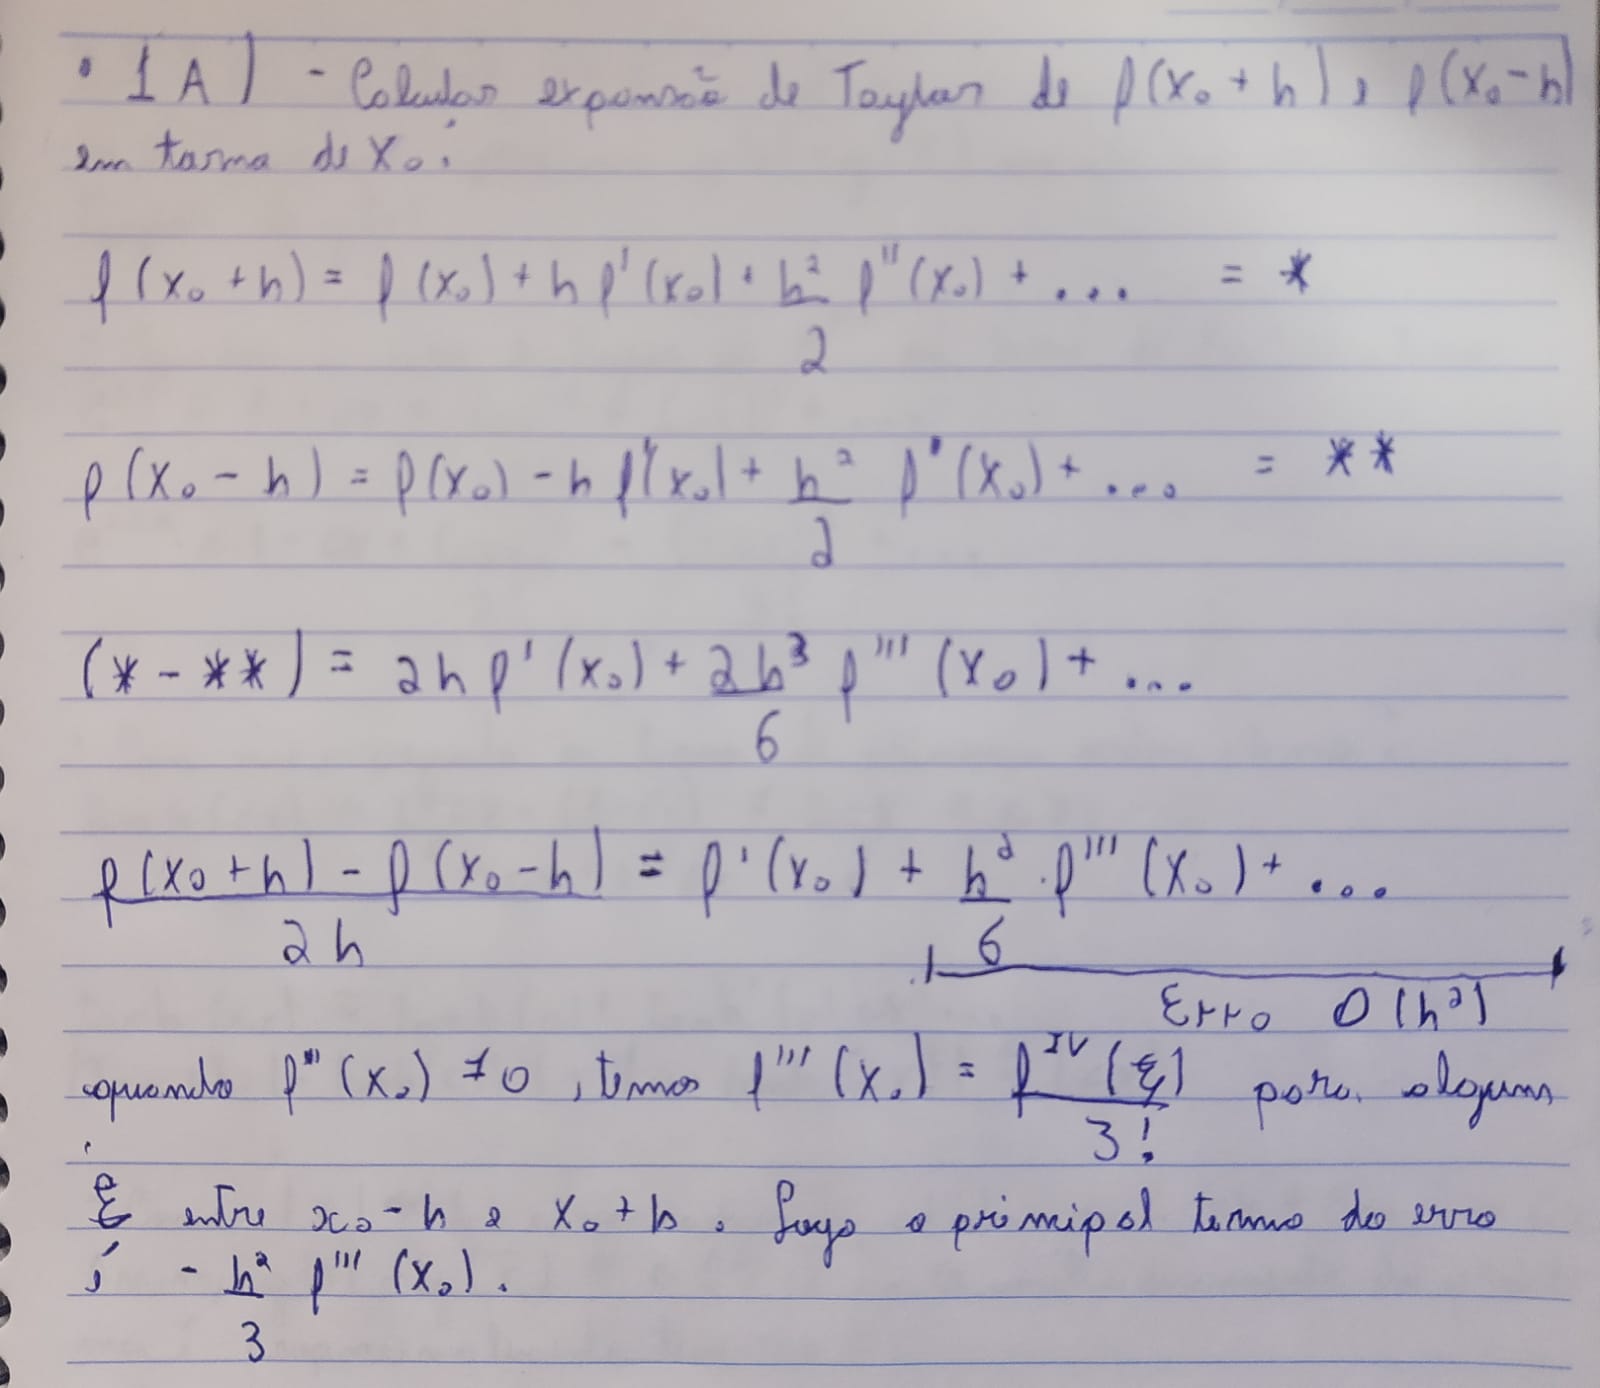 • 1A) - Calcular expansão de Taylor de f(x₀ + h) e f(x₀ - h)
em torno de x₀:
f(x₀ + h) = f(x₀) + h f'(x₀) + h²/2 f''(x₀) + ... = *
f(x₀ - h) = f(x₀) - h f'(x₀) + h²/2 f''(x₀) + ... = **
(* - **) = 2h f'(x₀) + 2h³/6 f'''(x₀) + ...
f(x₀ + h) - f(x₀ - h)/2h = f'(x₀) + h²/6 · f'''(x₀) + ...
Erro O(h²)
quando f'''(x₀) ≠ 0, temos f'''(x₀) = f^IV(ξ)/3! para algum
ξ entre x₀ - h e x₀ + h. Logo o principal termo do erro
é - h²/3 f'''(x₀).